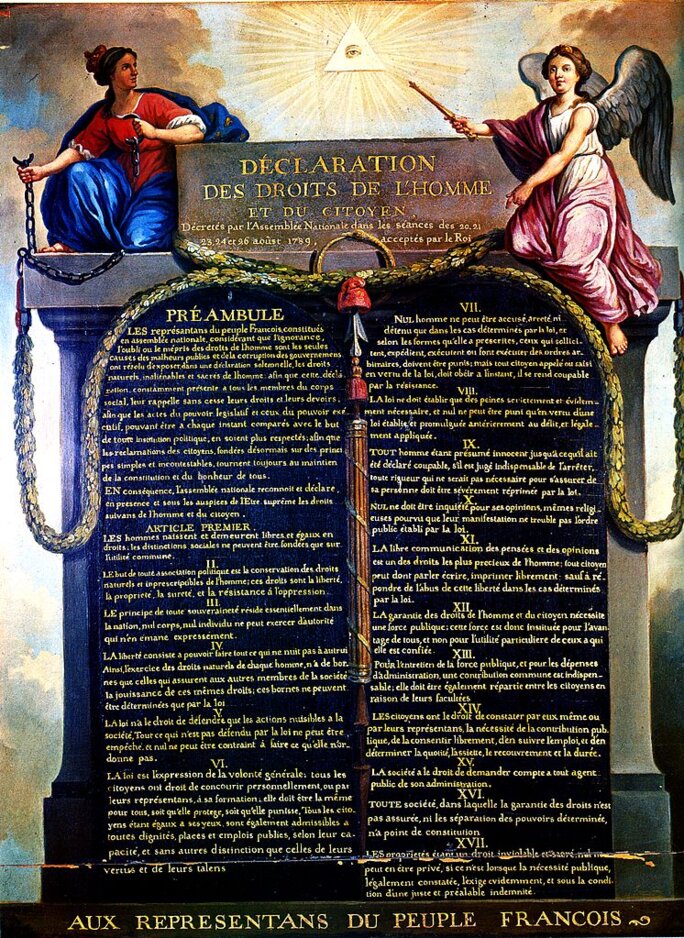 DÉCLARATION
DES DROITS DE L'HOMME
ET DU CITOYEN,
Décretés par l'Assemblée Nationale dans les séances des 20. 21
23. 24 et 26 aoûst 1789, acceptés par le Roi
PRÉAMBULE
LES représantans du peuple François, constitués
en assemblée nationale, considérant que l'ignorance,
l'oubli ou le mépris des droits de l'homme sont les seules
causes des malheurs publics et de la corruption des gouvernemens
ont résolu d'exposer dans une déclaration solemnelle, les droits
naturels, inaliénables et sacrés de l'homme; afin que cette décla-
ration, constamment présente a tous les membres du corps
social, leur rappelle sans cesse leurs droits et leurs devoirs;
afin que les actes du pouvoir legislatif et ceux du pouvoir exé-
cutif, pouvant être a chaque instant comparés avec le but
de toute institution politique, en soient plus respectés; afin que
les reclamations des citoyens, fondées désormais sur des princi-
pes simples et incontestables, tournent toujours au maintien
de la constitution et du bonheur de tous.
EN conséquence, l'assemblée nationale reconnoit et déclare,
en presence et sous les auspices de l'Etre suprême les droits
suivans de l'homme et du citoyen.
ARTICLE PREMIER.
LES hommes naissent et demeurent libres et égaux en
droits. les distinctions sociales ne peuvent être fondées que sur
l'utilité commune.
II.
LE but de toute association politique est la conservation des droits
naturels et inprescriptibles de l'homme; ces droits sont la liberté,
la propriété, la sureté, et la résistance à l'oppression.
III.
LE principe de toute souveraineté réside essentiellement dans
la nation, nul corps, nul individu ne peut exercer d'autorité
qui n'en émane expressément.
IV.
LA liberté consiste a pouvoir faire tout ce qui ne nuit pas à autrui
Ainsi, l'exercice des droits naturels de chaque homme, n'a de bor-
nes que celles qui assurent aux autres membres de la société
la jouissance de ces mêmes droits; ces bornes ne peuvent
être déterminées que par la loi
V.
LA loi n'a le droit de défendre que les actions nuisibles a la
société. Tout ce qui n'est pas défendu par la loi ne peut être
empêché, et nul ne peut être contraint à faire ce qu'elle n'or-
donne pas.
VI.
LA loi est l'expression de la volonté générale; tous les
citoyens ont droit de concourir personnellement, ou par
leurs représentans, à sa formation; elle doit être la même
pour tous, soit qu'elle protege, soit qu'elle punisse. Tous les cito-
yens étant égaux a ses yeux, sont également admissibles a
toutes dignités, places et emplois publics, selon leur ca-
pacité, et sans autres distinction que celles de leurs
vertus et de leurs talens
VII.
NUL homme ne peut être accusé, arreté, ni
détenu que dans les cas déterminés par la loi, et
selon les formes qu'elle a prescrites, ceux qui sollici-
tent, expédient, exécutent ou font exécuter des ordres ar-
bitraires, doivent être punis; mais tout citoyen appelé ou saisi
en vertu de la loi, doit obéir a l'instant, il se rend coupable
par la résistance.
VIII.
LA loi ne doit établir que des peines strictement et évidem-
ment nécessaire, et nul ne peut être puni qu'en vertu d'une
loi établie et promulguée antérierement au délit, et légale-
ment appliquée.
IX.
TOUT homme étant présumé innocent jusqu'à ce qu'il ait
été déclaré coupable, s'il est jugé indispensable de l'arrêter,
toute rigueur qui ne serait pas nécessaire pour s'assurer de
sa personne doit être sévèrement réprimée par la loi.
X.
NUL ne doit être inquiété pour ses opinions, mêmes religi-
euses pourvu que leur manifestation ne trouble pas l'ordre
public établi par la loi.
XI.
LA libre communication des pensées et des opinions
est un des droits les plus precieux de l'homme; tout citoyen
peut dont parler écrire, imprimer librement: sauf à ré-
pondre de l'abus de cette liberté dans les cas déterminés
par la loi.
XII.
LA garantie des droits de l'homme et du citoyen nécessite
une force publique; cette force est donc instituée pour l'avan-
tage de tous, et non pour l'utilité particuliere de ceux a qui
elle est confiée.
XIII.
Pour l'entretien de la force publique, et pour les dépenses
d'administration, une contribution commune est indispen-
sable; elle doit être également répartie entre les citoyens en
raison de leurs facultées
XIV.
LES citoyens ont le droit de constater par eux même ou
par leurs représentans, la nécessité de la contribution pub-
lique, de la consentir librement, d'en suivre l'emploi, et d'en
déterminer la quotité, l'assiette, le recouvrement et la durée.
XV.
LA société a le droit de demander compte a tout agent
public de son administration.
XVI.
TOUTE société, dans laquelle la garantie des droits n'est
pas assurée, ni les séparation des pouvoirs déterminée,
n'a point de constitution
XVII.
LES propriétés étant un droit inviolable et sacré, nul ne
peut en être privé, si ce n'est lorsque la nécessité publique,
légalement constatée, l'exige evidemment, et sous la condi-
tion d'une juste et préalable indemnité.
AUX REPRESENTANS DU PEUPLE FRANCOIS